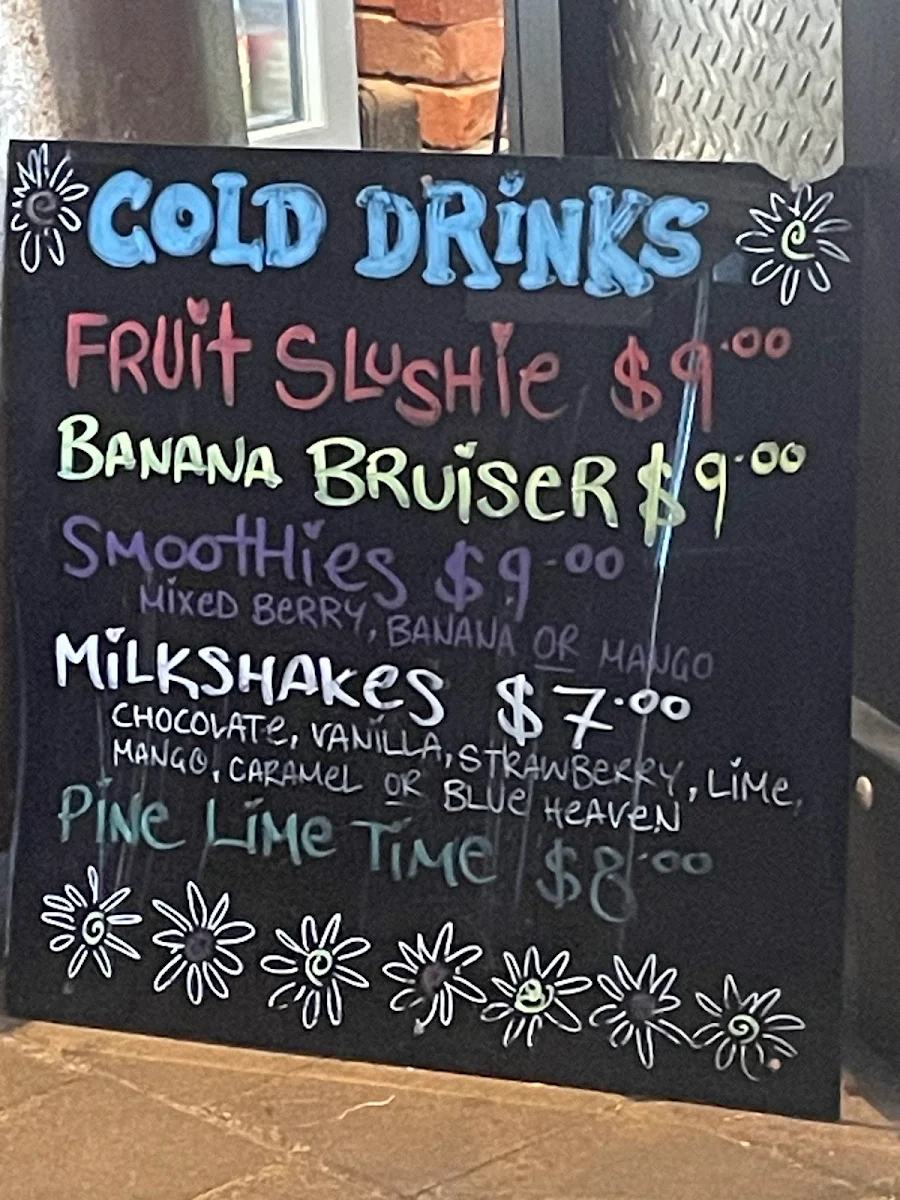 COLD DRiNKS
FRUit SLUSHie $9.00
BANANA BRUiSeR $9.00
SMOOtHies $9.00
MiXeD BeRRY, BANANA OR MANGO
MiLKSHAKeS $7.00
CHOCOLATe, VANiLLA, STRAWBeRRY, LiMe,
MANGO, CARAMeL OR BLUe HeAVeN
PiNe LiMe TiMe $8.00